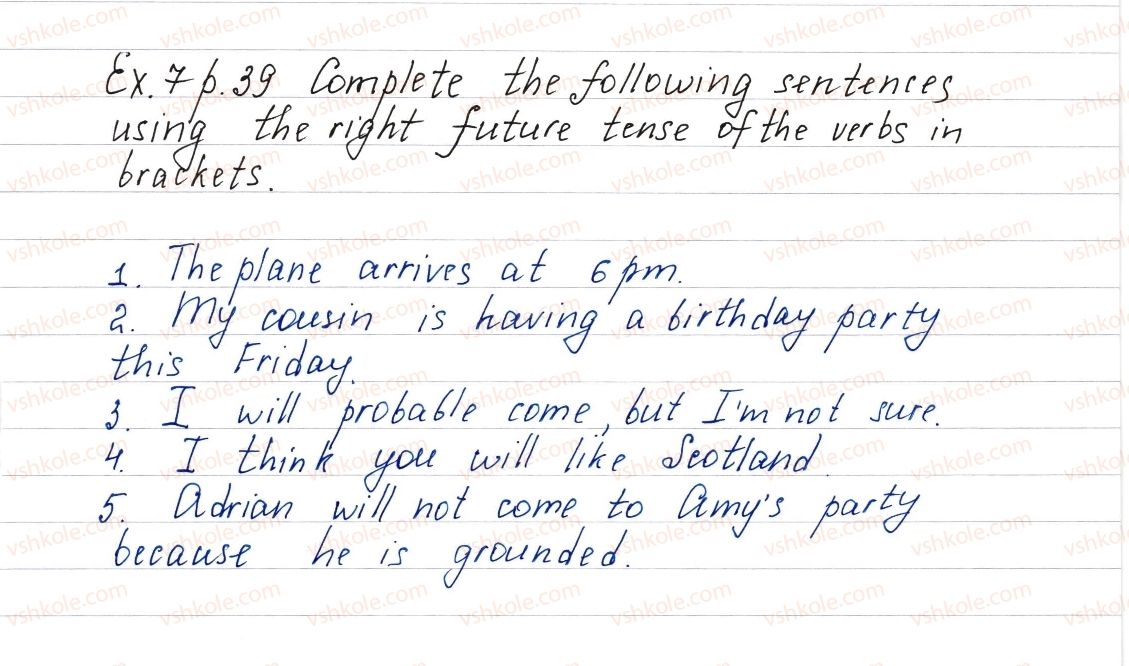 Ex. 7 p. 39 Complete the following sentences
using the right future tense of the verbs in
brackets.
1. The plane arrives at 6 pm.
2. My cousin is having a birthday party
this Friday.
3. I will probable come, but I'm not sure.
4. I think you will like Scotland.
5. Adrian will not come to Amy's party
because he is grounded.